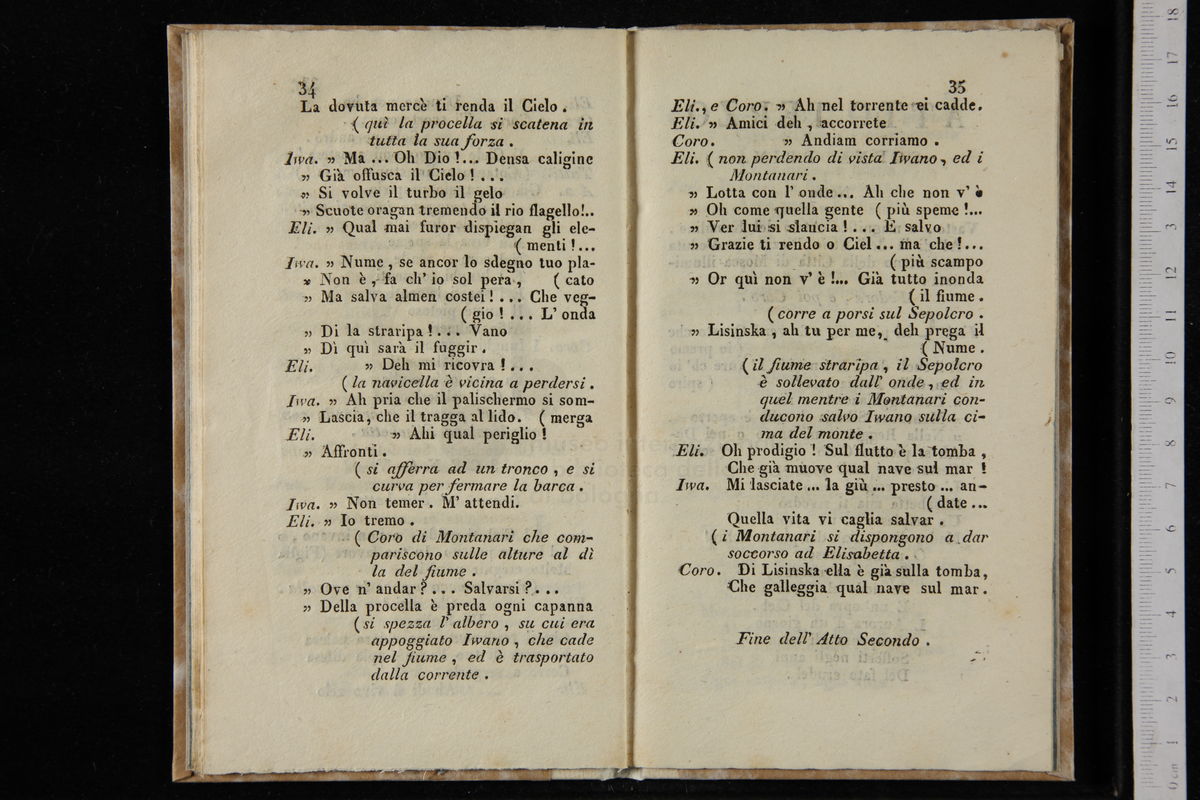 34
La dovuta mercè ti renda il Cielo .
( quì la procella si scatena in
tutta la sua forza .
Iwa. » Ma ... Oh Dio !... Densa caligine
» Già offusca il Cielo ! ...
» Si volve il turbo il gelo
» Scuote oragan tremendo il rio flagello!..
Eli. » Qual mai furor dispiegan gli ele-
( menti !...
Iwa. » Nume , se ancor lo sdegno tuo pla-
» Non è , fa ch' io sol pera , ( cato
» Ma salva almen costei ! ... Che veg-
( gio ! ... L' onda
» Di la straripa ! ... Vano
» Dì quì sarà il fuggir .
Eli. » Deh mi ricovra ! ...
( la navicella è vicina a perdersi .
Iwa. » Ah pria che il palischermo si som-
» Lascia, che il tragga al lido. ( merga
Eli. » Ahi qual periglio !
» Affronti .
( si afferra ad un tronco , e si
curva per fermare la barca .
Iwa. » Non temer . M' attendi.
Eli. » Io tremo .
( Coro di Montanari che com-
pariscono sulle alture al dì
la del fiume .
» Ove n' andar ? ... Salvarsi ? ...
» Della procella è preda ogni capanna
( si spezza l' albero , su cui era
appoggiato Iwano , che cade
nel fiume , ed è trasportato
dalla corrente .
35
Eli., e Coro. » Ah nel torrente ei cadde.
Eli. » Amici deh , accorrete
Coro. » Andiam corriamo .
Eli. ( non perdendo di vista Iwano , ed i
Montanari .
» Lotta con l' onde ... Ah che non v' è
» Oh come quella gente ( più speme !...
» Ver lui si slancia ! ... E salvo
» Grazie ti rendo o Ciel ... ma che !...
( più scampo
» Or quì non v' è !... Già tutto inonda
( il fiume .
( corre a porsi sul Sepolcro .
» Lisinska , ah tu per me, deh prega il
( Nume .
( il fiume straripa , il Sepolcro
è sollevato dall' onde , ed in
quel mentre i Montanari con-
ducono salvo Iwano sulla ci-
ma del monte .
Eli. Oh prodigio ! Sul flutto è la tomba ,
Che già muove qual nave sul mar !
Iwa. Mi lasciate ... la giù ... presto ... an-
( date ...
Quella vita vi caglia salvar .
( i Montanari si dispongono a dar
soccorso ad Elisabetta .
Coro. Di Lisinska ella è già sulla tomba,
Che galleggia qual nave sul mar.
Fine dell' Atto Secondo .
0 cm 1 2 3 4 5 6 7 8 9 10 11 12 13 14 15 16 17 18